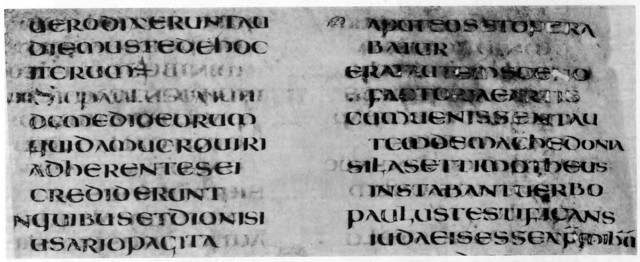 UERODIXERUNTAU
DIEMUSTEDEHOC
ITERUM
SICPAULUS
DEMEDIOEORUM
QUIDAMUEROUIRI
ADHERENTESEI
CREDIDERUNT
NQUIBUSETDIONISI
USARIOPAGITA
APUTEOSETOPERA
BATUR
ERATAUTEMSCENO
FACTORIAEARTIS
CUMUENISSENTAU
TEMDEMACHEDONIA
SILASETTIMOTHEUS
INSTABANTUERBO
PAULUSTESTIFICANS
IUDAEISESSE